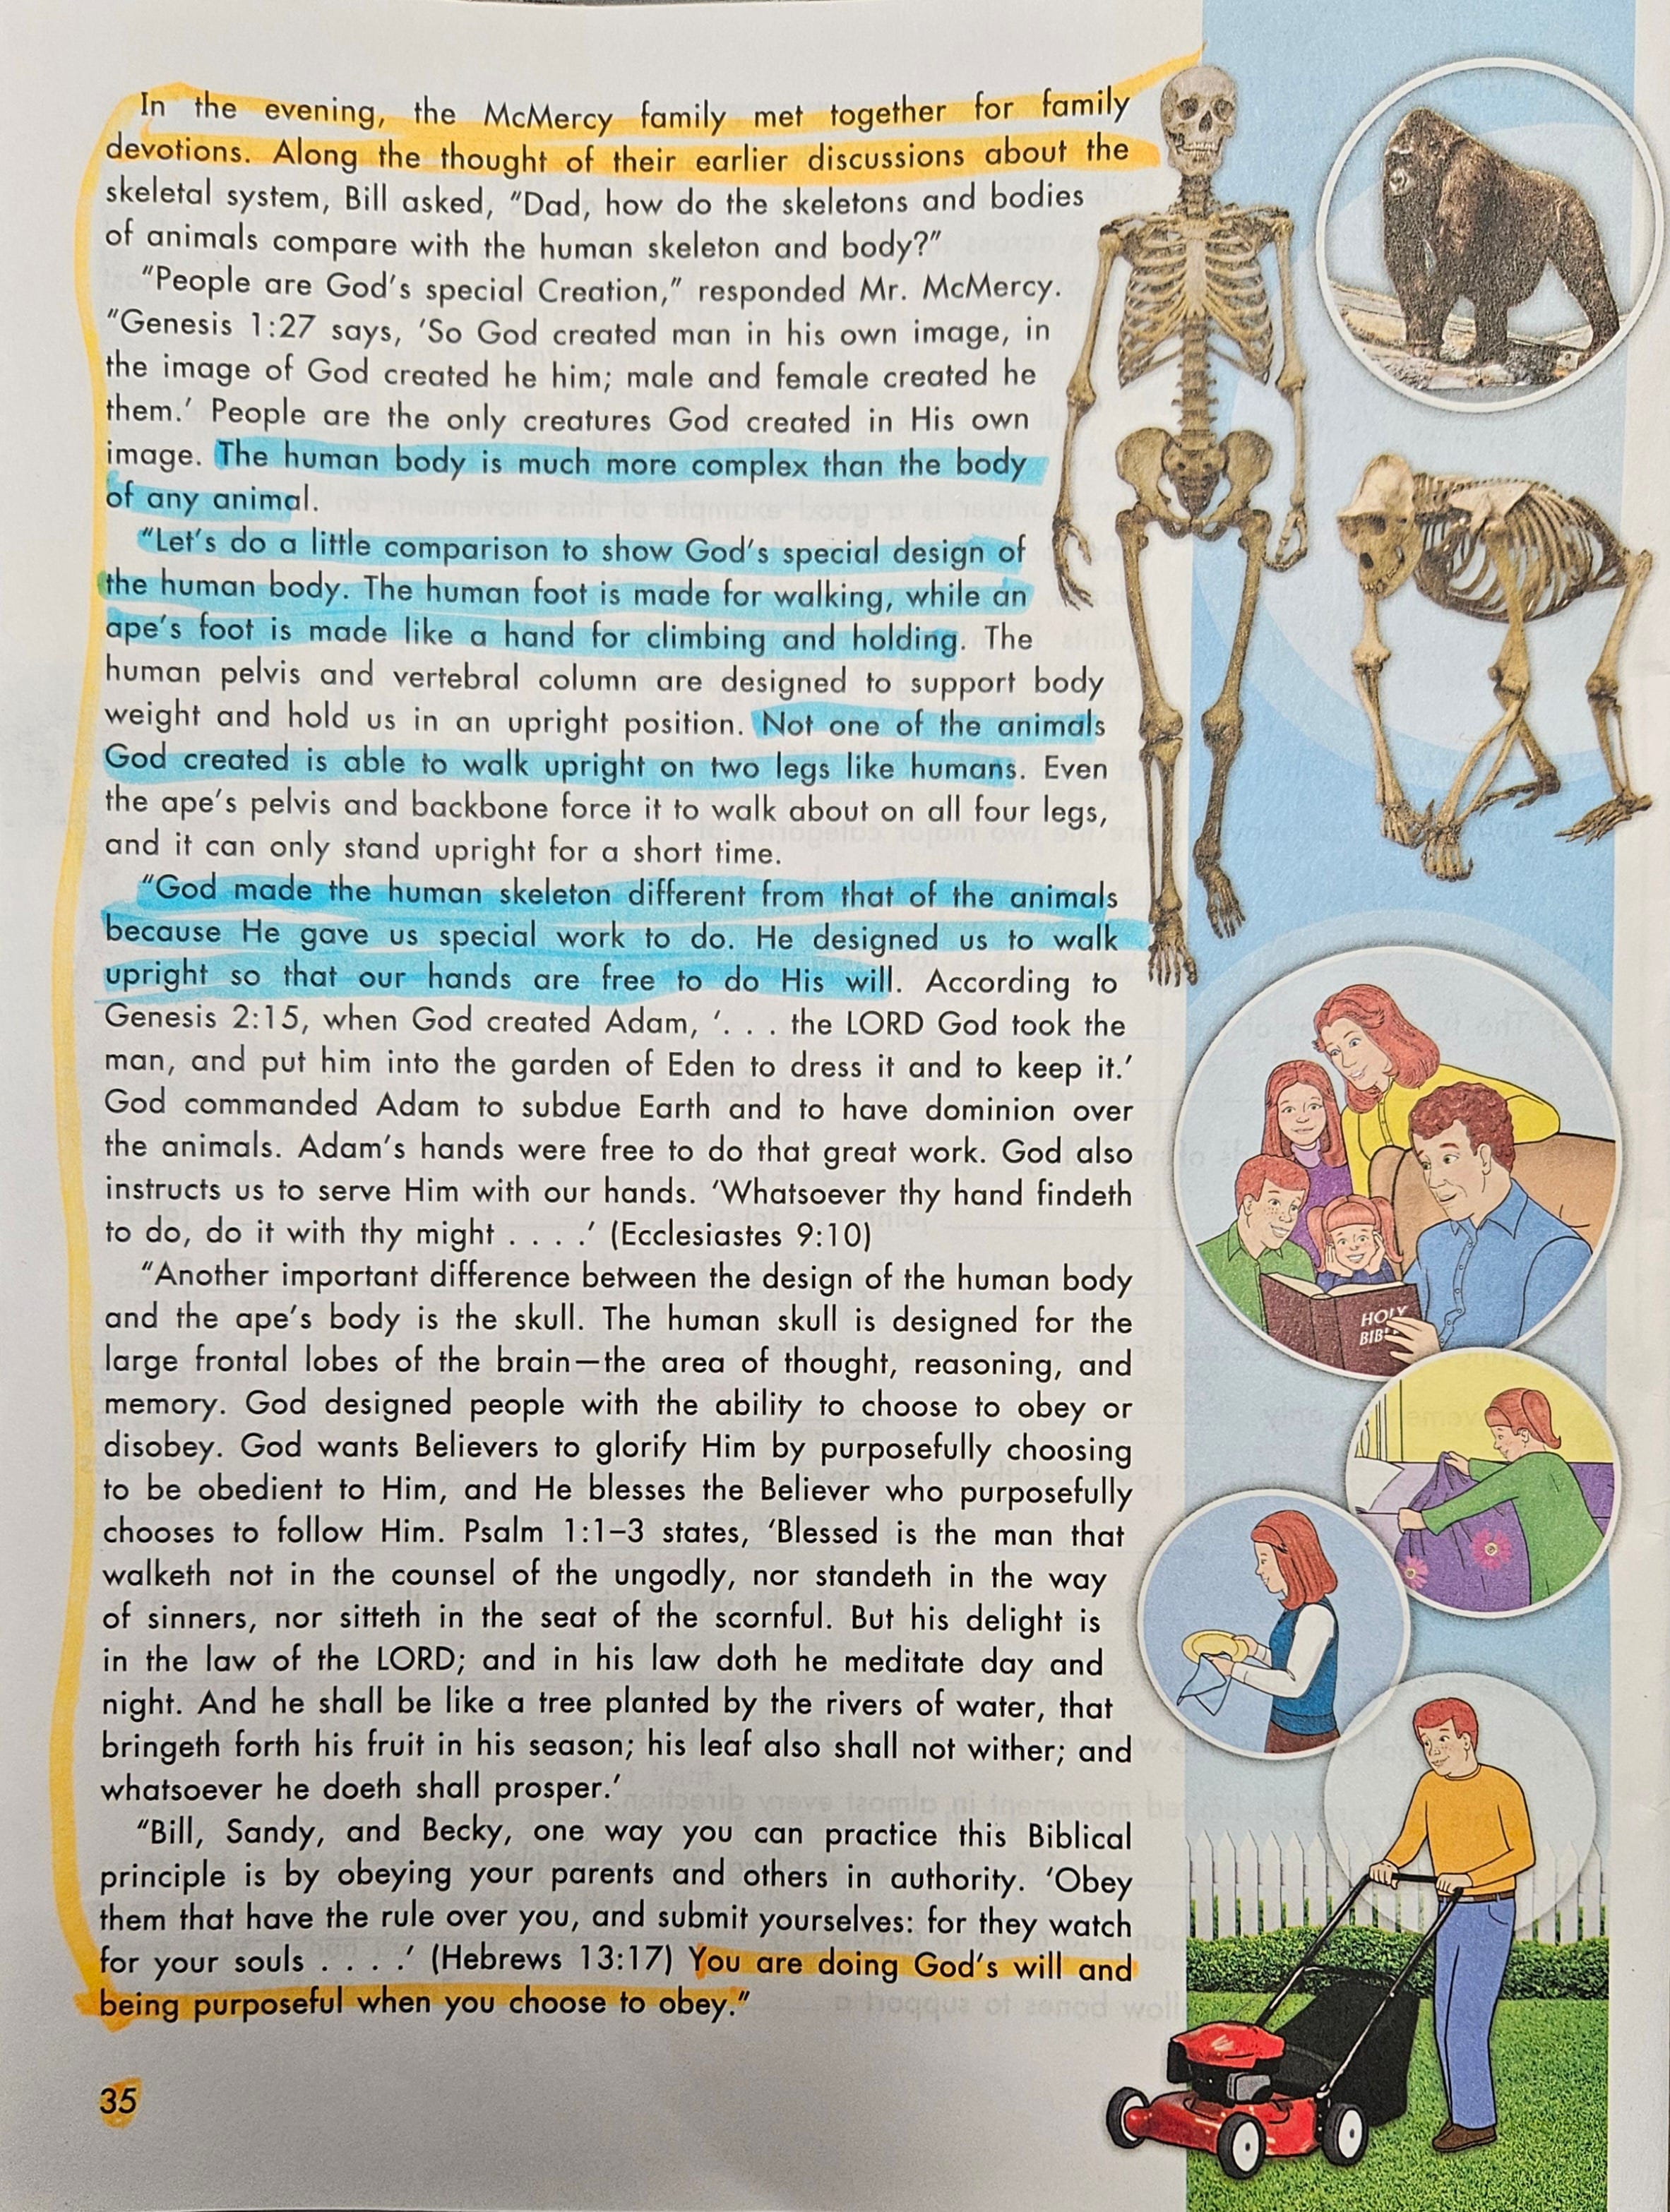 In the evening, the McMercy family met together for family
devotions. Along the thought of their earlier discussions about the
skeletal system, Bill asked, “Dad, how do the skeletons and bodies
of animals compare with the human skeleton and body?”
“People are God’s special Creation,” responded Mr. McMercy.
“Genesis 1:27 says, ‘So God created man in his own image, in
the image of God created he him; male and female created he
them.’ People are the only creatures God created in His own
image. The human body is much more complex than the body
of any animal.
“Let’s do a little comparison to show God’s special design of
the human body. The human foot is made for walking, while an
ape’s foot is made like a hand for climbing and holding. The
human pelvis and vertebral column are designed to support body
weight and hold us in an upright position. Not one of the animals
God created is able to walk upright on two legs like humans. Even
the ape’s pelvis and backbone force it to walk about on all four legs,
and it can only stand upright for a short time.
“God made the human skeleton different from that of the animals
because He gave us special work to do. He designed us to walk
upright so that our hands are free to do His will. According to
Genesis 2:15, when God created Adam, ‘. . . the LORD God took the
man, and put him into the garden of Eden to dress it and to keep it.’
God commanded Adam to subdue Earth and to have dominion over
the animals. Adam’s hands were free to do that great work. God also
instructs us to serve Him with our hands. ‘Whatsoever thy hand findeth
to do, do it with thy might . . . .’ (Ecclesiastes 9:10)
“Another important difference between the design of the human body
and the ape’s body is the skull. The human skull is designed for the
large frontal lobes of the brain—the area of thought, reasoning, and
memory. God designed people with the ability to choose to obey or
disobey. God wants Believers to glorify Him by purposefully choosing
to be obedient to Him, and He blesses the Believer who purposefully
chooses to follow Him. Psalm 1:1–3 states, ‘Blessed is the man that
walketh not in the counsel of the ungodly, nor standeth in the way
of sinners, nor sitteth in the seat of the scornful. But his delight is
in the law of the LORD; and in his law doth he meditate day and
night. And he shall be like a tree planted by the rivers of water, that
bringeth forth his fruit in his season; his leaf also shall not wither; and
whatsoever he doeth shall prosper.’
“Bill, Sandy, and Becky, one way you can practice this Biblical
principle is by obeying your parents and others in authority. ‘Obey
them that have the rule over you, and submit yourselves: for they watch
for your souls . . . .’ (Hebrews 13:17) You are doing God’s will and
being purposeful when you choose to obey.”
35
HOLY